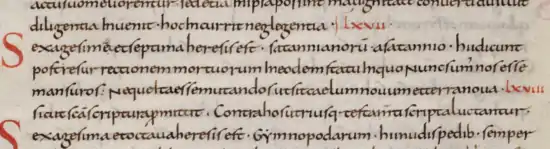 diligentia invenit · hoc incurrit neglegentia · LXVII
Sexagesima et septima heresis est · satannianorū · a satannio · hii dicunt
post resurrectionem mortuorum in eodem statu in quo nunc sum͛ nos esse
mansuros · Neque ita esse mutandos ut sit caelum novum et terra nova · LXVIII
sicut scā scriptura pmittit · Contra hos utriusq· testam̄ti scripta luctantur ·
Sexagesima et octava heresis est · Gymnopodarum · hii nudis pedib· semper